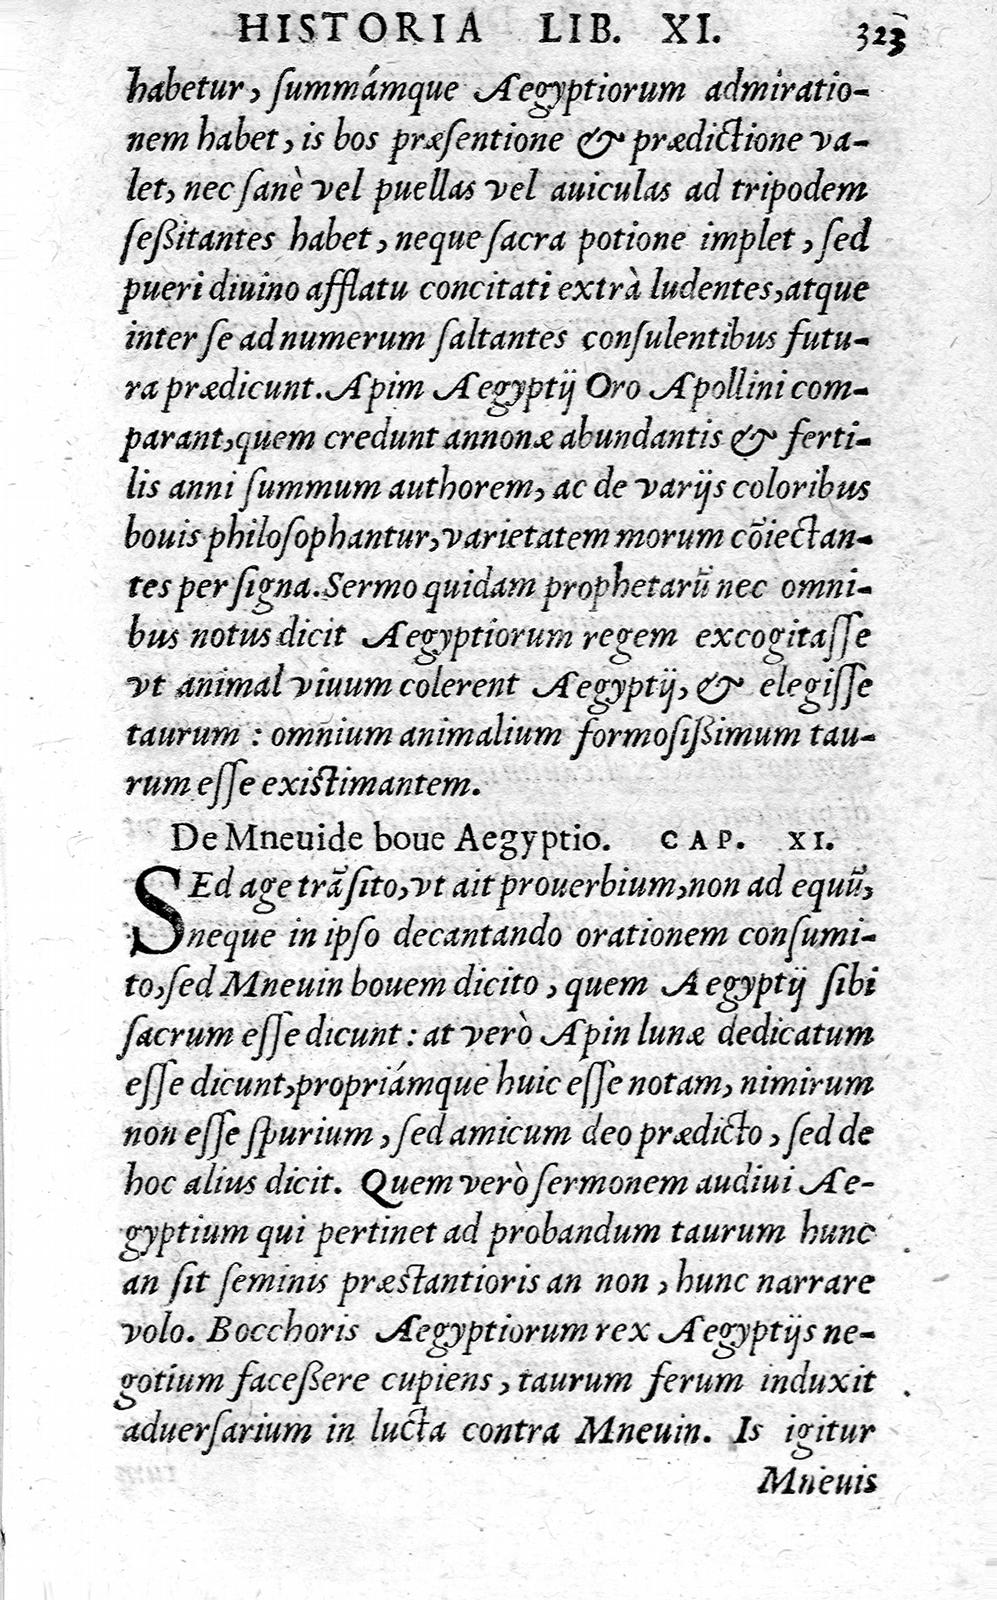 HISTORIA LIB. XI. 323
habetur, ſummámque Aegyptiorum admiratio-
nem habet, is bos præſentione & prædictione va-
let, nec ſanè vel puellas vel auiculas ad tripodem
ſeßitantes habet, neque ſacra potione implet, ſed
pueri diuino afflatu concitati extrà ludentes, atque
inter ſe ad numerum ſaltantes conſulentibus futu-
ra prædicunt. Apim Aegyptij Oro Apollini com-
parant, quem credunt annonæ abundantis & ferti-
lis anni ſummum authorem, ac de varijs coloribus
bouis philoſophantur, varietatem morum cōiectan-
tes per ſigna. Sermo quidam prophetarū nec omni-
bus notus dicit Aegyptiorum regem excogitaſſe
vt animal viuum colerent Aegyptij, & elegiſſe
taurum : omnium animalium formoſißimum tau-
rum eſſe existimantem.
De Mneuide boue Aegyptio. CAP. XI.
SEd age trāſito, vt ait prouerbium, non ad equū,
neque in ipſo decantando orationem conſumi-
to, ſed Mneuin bouem dicito, quem Aegyptij ſibi
ſacrum eſſe dicunt : at verò Apin lunæ dedicatum
eſſe dicunt, propriámque huic eſſe notam, nimirum
non eſſe ſpurium, ſed amicum deo prædicto, ſed de
hoc alius dicit. Quem verò ſermonem audiui Ae-
gyptium qui pertinet ad probandum taurum hunc
an ſit ſeminis præstantioris an non, hunc narrare
volo. Bocchoris Aegyptiorum rex Aegyptijs ne-
gotium faceßere cupiens, taurum ferum induxit
aduerſarium in lucta contra Mneuin. Is igitur
Mneuis